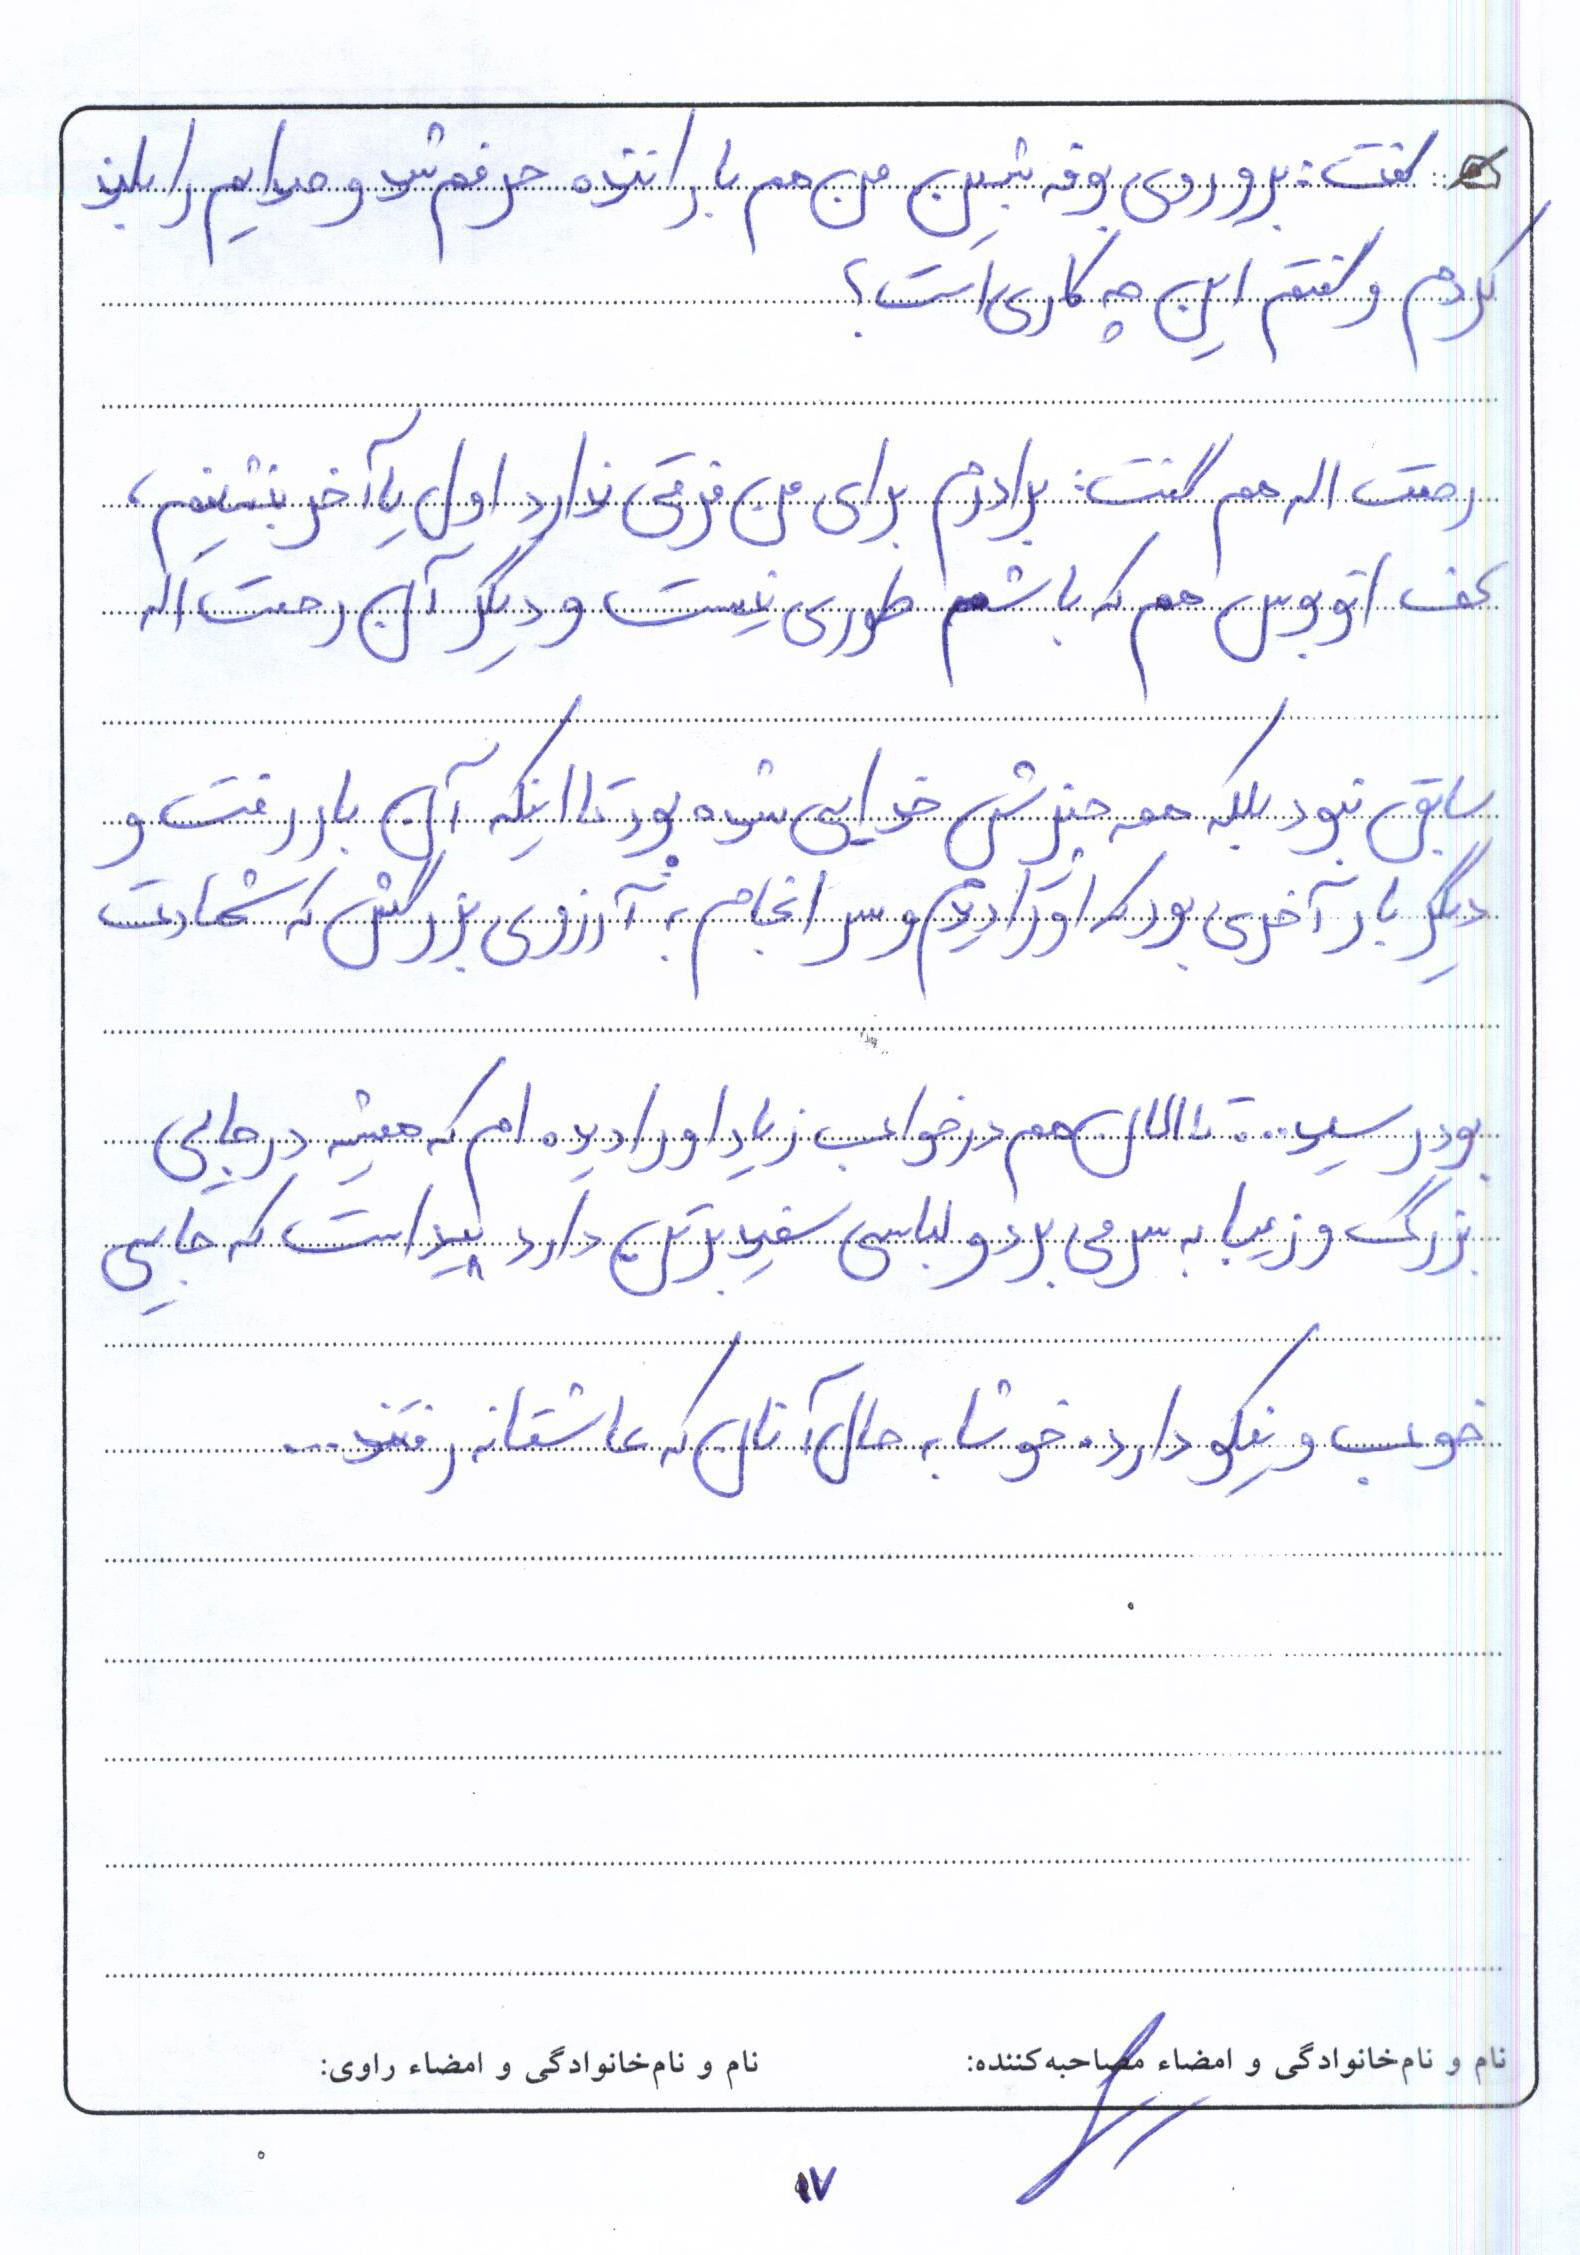 گفت: برو روی بوفه بنشین من هم با راننده حرفم شد و صدایم را بلند
کردم و گفتم این چه کاری است؟
رحمت اله هم گفت: برادرم برای من فرقی ندارد اول یا آخر بنشینم،
کف اتوبوس هم که باشم طوری نیست و دیگر آن رحمت اله
سابق نبود بلکه همه چیزش خدایی شده بود تا اینکه آن بار رفت و
دیگر بار آخری بود که او را دیدم و سرانجام به آرزوی بزرگش که شهادت
بود رسید... تا الان هم در خواب زیاد او را دیده ام که همیشه در جایی
بزرگ و زیبا به سر می برد و لباسی سفید بر تن دارد پیداست که جایی
خوب و نیکو دارد. خوشا به حال آنان که عاشقانه رفتند...
نام و نام‌خانوادگی و امضاء مصاحبه‌کننده:
نام و نام‌خانوادگی و امضاء راوی:
۱۷